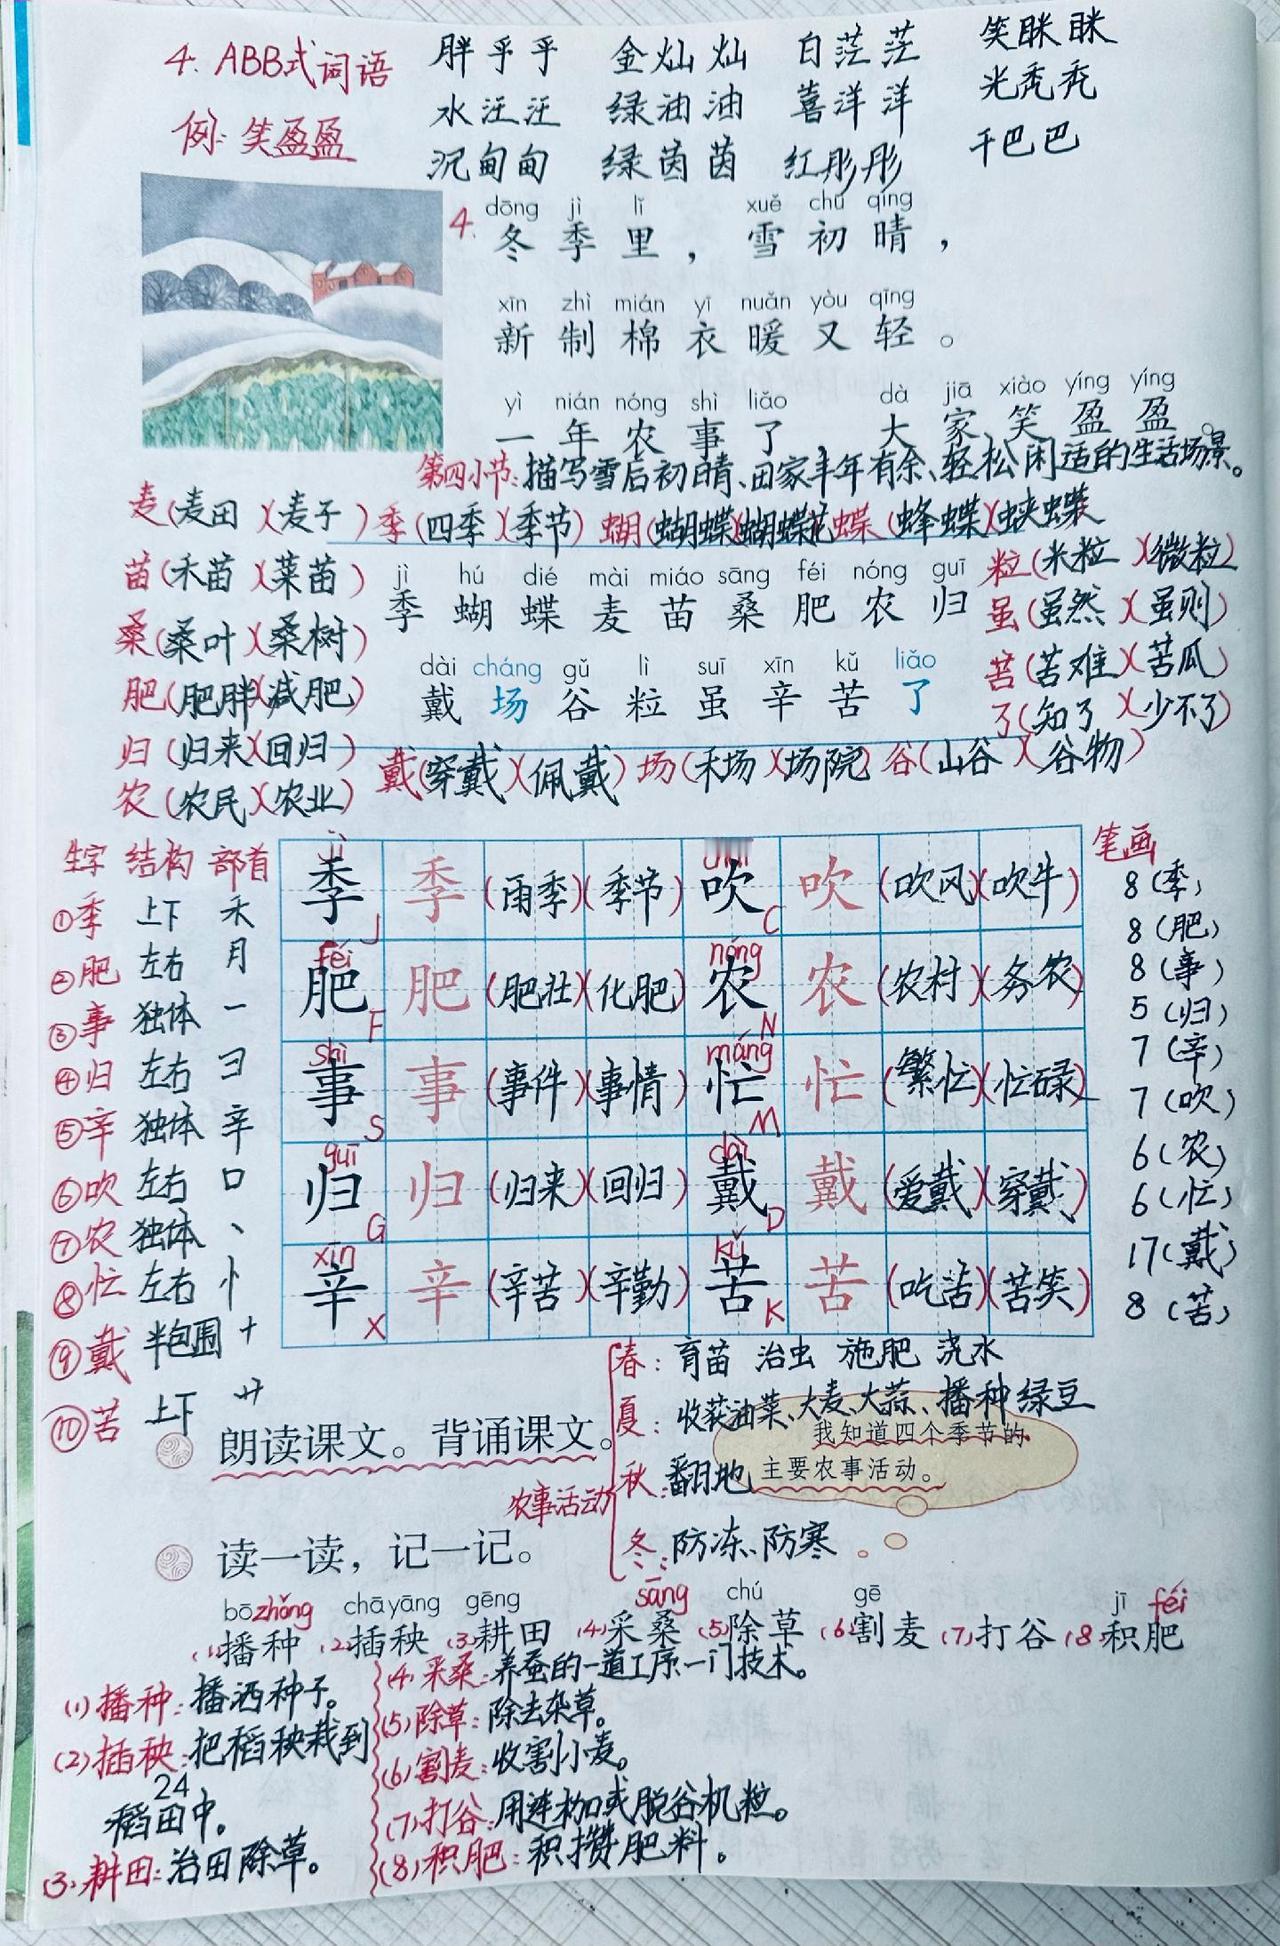 4. ABB式词语 胖乎乎 金灿灿 白茫茫 笑眯眯
水汪汪 绿油油 喜洋洋 光秃秃
例: 笑盈盈
沉甸甸 绿茵茵 红彤彤 干巴巴
dōng jì lǐ xuě chū qíng
4. 冬季里，雪初晴，
xīn zhì mián yī nuǎn yòu qīng
新制棉衣暖又轻。
yì nián nóng shì liǎo dà jiā xiào yíng yíng
一年农事了 大家笑盈盈。
第四小节: 描写雪后初晴、田家丰年有余、轻松闲适的生活场景。
麦(麦田)(麦子) 季(四季)(季节) 蝴(蝴蝶)(蝴蝶花) 蝶(蜂蝶)(蛱蝶)
苗(禾苗)(菜苗)
桑(桑叶)(桑树)
肥(肥胖)(减肥)
归(归来)(回归)
农(农民)(农业)
jì hú dié mài miáo sāng féi nóng guī
季 蝴 蝶 麦 苗 桑 肥 农 归
dài cháng gǔ lì suī xīn kǔ liǎo
戴 场 谷 粒 虽 辛 苦 了
粒(米粒)(微粒)
虽(虽然)(虽则)
苦(苦难)(苦瓜)
了(知了)(少不了)
戴(穿戴)(佩戴) 场(禾场)(场院) 谷(山谷)(谷物)
生字 结构 部首
①季 上下 禾
②肥 左右 月
③事 独体 一
④归 左右 彐
⑤辛 独体 辛
⑥吹 左右 口
⑦农 独体 丶
⑧忙 左右 忄
⑨戴 半包围 十
⑩苦 上下 艹
jì
季 J 季 (雨季)(季节) 吹 C 吹 (吹风)(吹牛)
féi nóng
肥 F 肥 (肥壮)(化肥) 农 N 农 (农村)(务农)
shì máng
事 S 事 (事件)(事情) 忙 M 忙 (繁忙)(忙碌)
guī dài
归 G 归 (归来)(回归) 戴 D 戴 (爱戴)(穿戴)
xīn kǔ
辛 X 辛 (辛苦)(辛勤) 苦 K 苦 (吃苦)(苦笑)
笔画
8(季)
8(肥)
8(事)
5(归)
7(辛)
7(吹)
6(农)
6(忙)
17(戴)
8(苦)
朗读课文。背诵课文。
农事活动
春: 育苗 治虫 施肥 浇水
夏: 收获油菜、大麦、大蒜、播种绿豆
秋: 翻地
冬: 防冻、防寒
我知道四个季节的
主要农事活动。
读一读，记一记。
bō zhǒng chā yāng gēng sāng chú gē jī féi
(1)播种 (2)插秧 (3)耕田 (4)采桑 (5)除草 (6)割麦 (7)打谷 (8)积肥
(1)播种: 播洒种子。
(2)插秧: 把稻秧栽到
稻田中。
(3)耕田: 治田除草。
(4)采桑: 养蚕的一道工序、一门技术。
(5)除草: 除去杂草。
(6)割麦: 收割小麦。
(7)打谷: 用连枷或脱谷机粒。
(8)积肥: 积攒肥料。
24